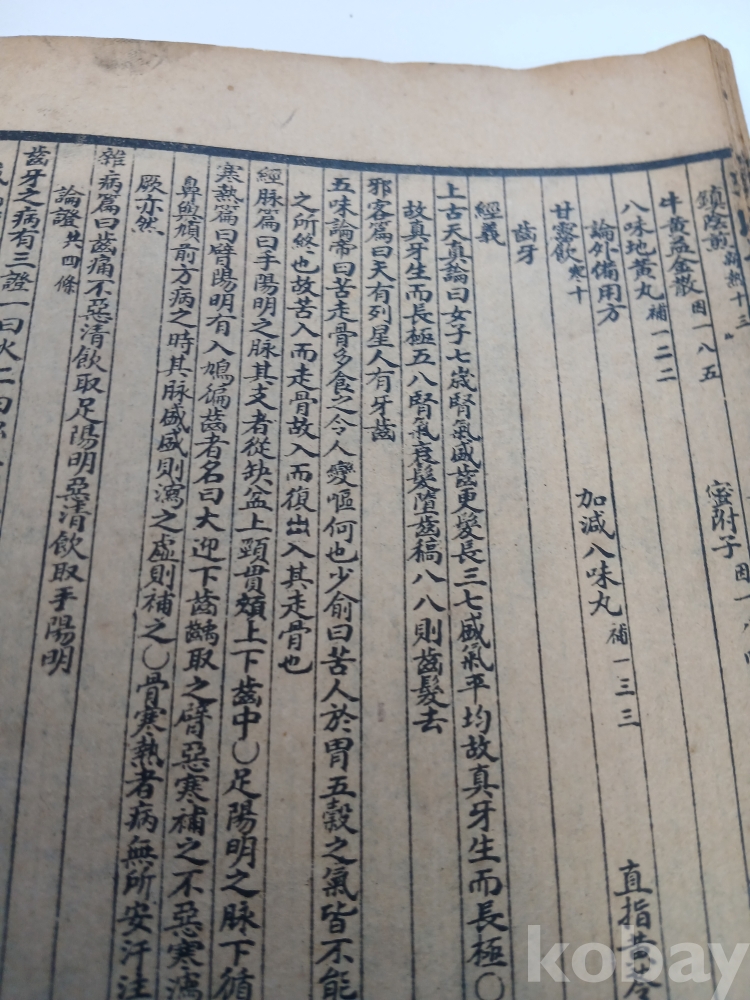 鎮陰煎 新熱十三
牛黃益金散 因一八五 蜜附子
八味地黃丸 補一二二
論外備用方 加減八味丸 補一三三 直指黃芩
甘露飲 寒十
齒牙
經義
上古天真論曰女子七歲腎氣盛齒更髮長三七盛氣平均故真牙生而長極〇
故真牙生而長極五八腎氣衰髮墮齒稿八八則齒髮去
邪客篇曰天有列星人有牙齒
五味論帝曰苦走骨多食之令人變嘔何也少俞曰苦人於胃五穀之氣皆不能
之所終也故苦入而走骨故入而復出入其走骨也
經脉篇曰手陽明之脉其支者從缺盆上頸貫頰上下齒中〇足陽明之脉下循
寒熱篇曰臂陽明有入鳩徧齒者名曰大迎下齒齲取之臂惡寒補之不惡寒瀉
鼻與頄前方病之時其脉盛盛則瀉之虛則補之〇骨寒熱者病無所安汗注
厥亦然
雜病篇曰齒痛不惡清飲取足陽明惡清飲取手陽明
論證 共四條
齒牙之病有三證一曰火二曰
kobay